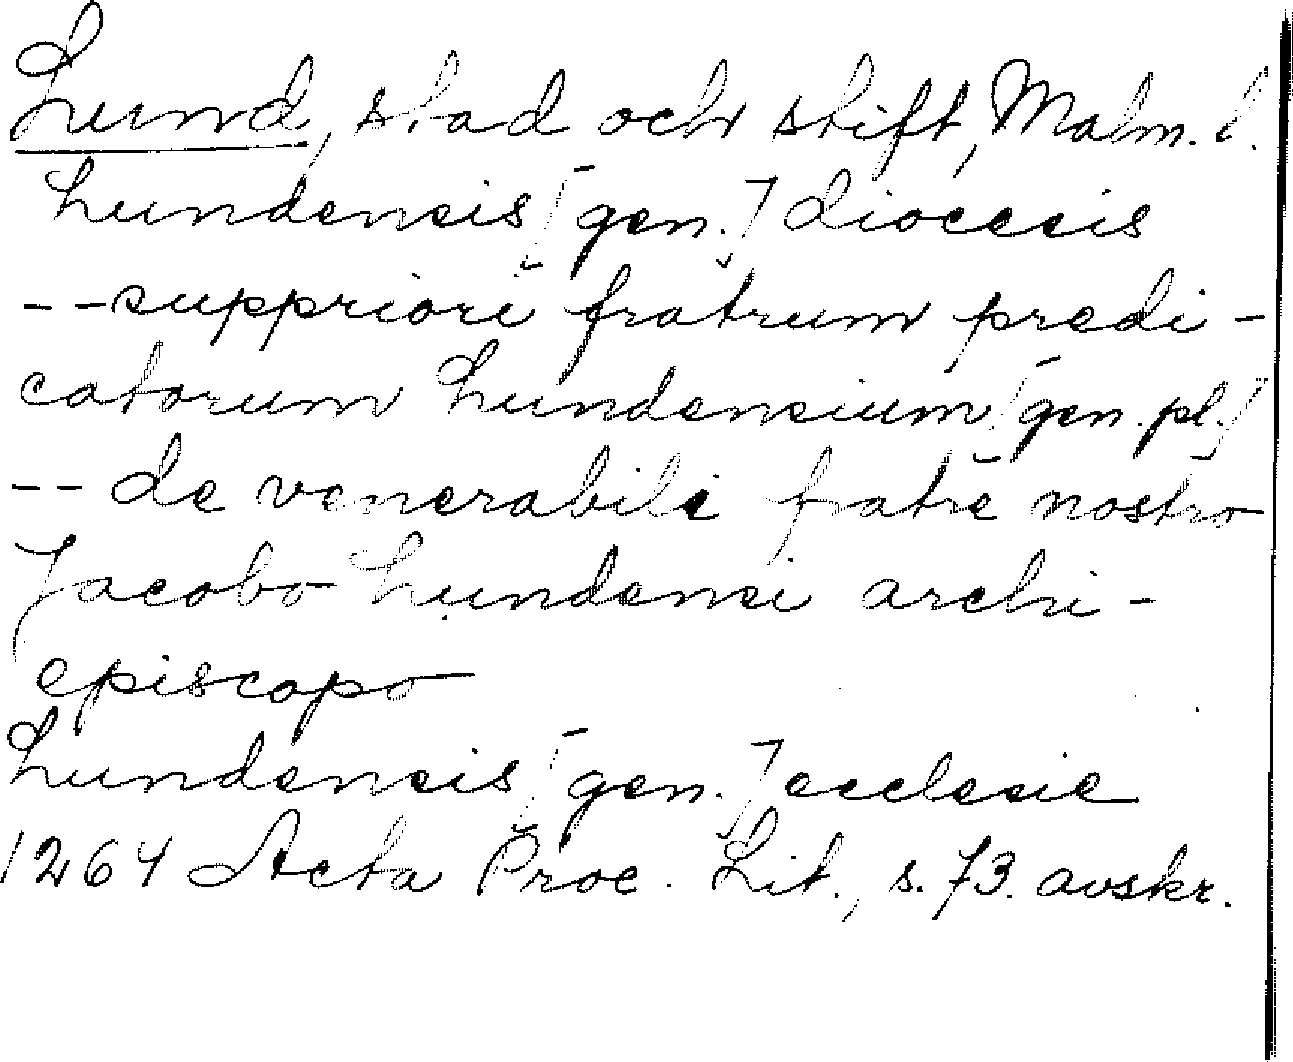 Lund, stad och stift, Malm. l.
Lundensis [gen.] diocesis
-- suppriori fratrum predi-
catorum Lundensium [gen. pl.]
-- de venerabili fratre nostro
Jacobo Lundensi archi-
episcopo
Lundensis [gen.] ecclesie
1264 Acta Proc. Lit., s. 73. avskr.